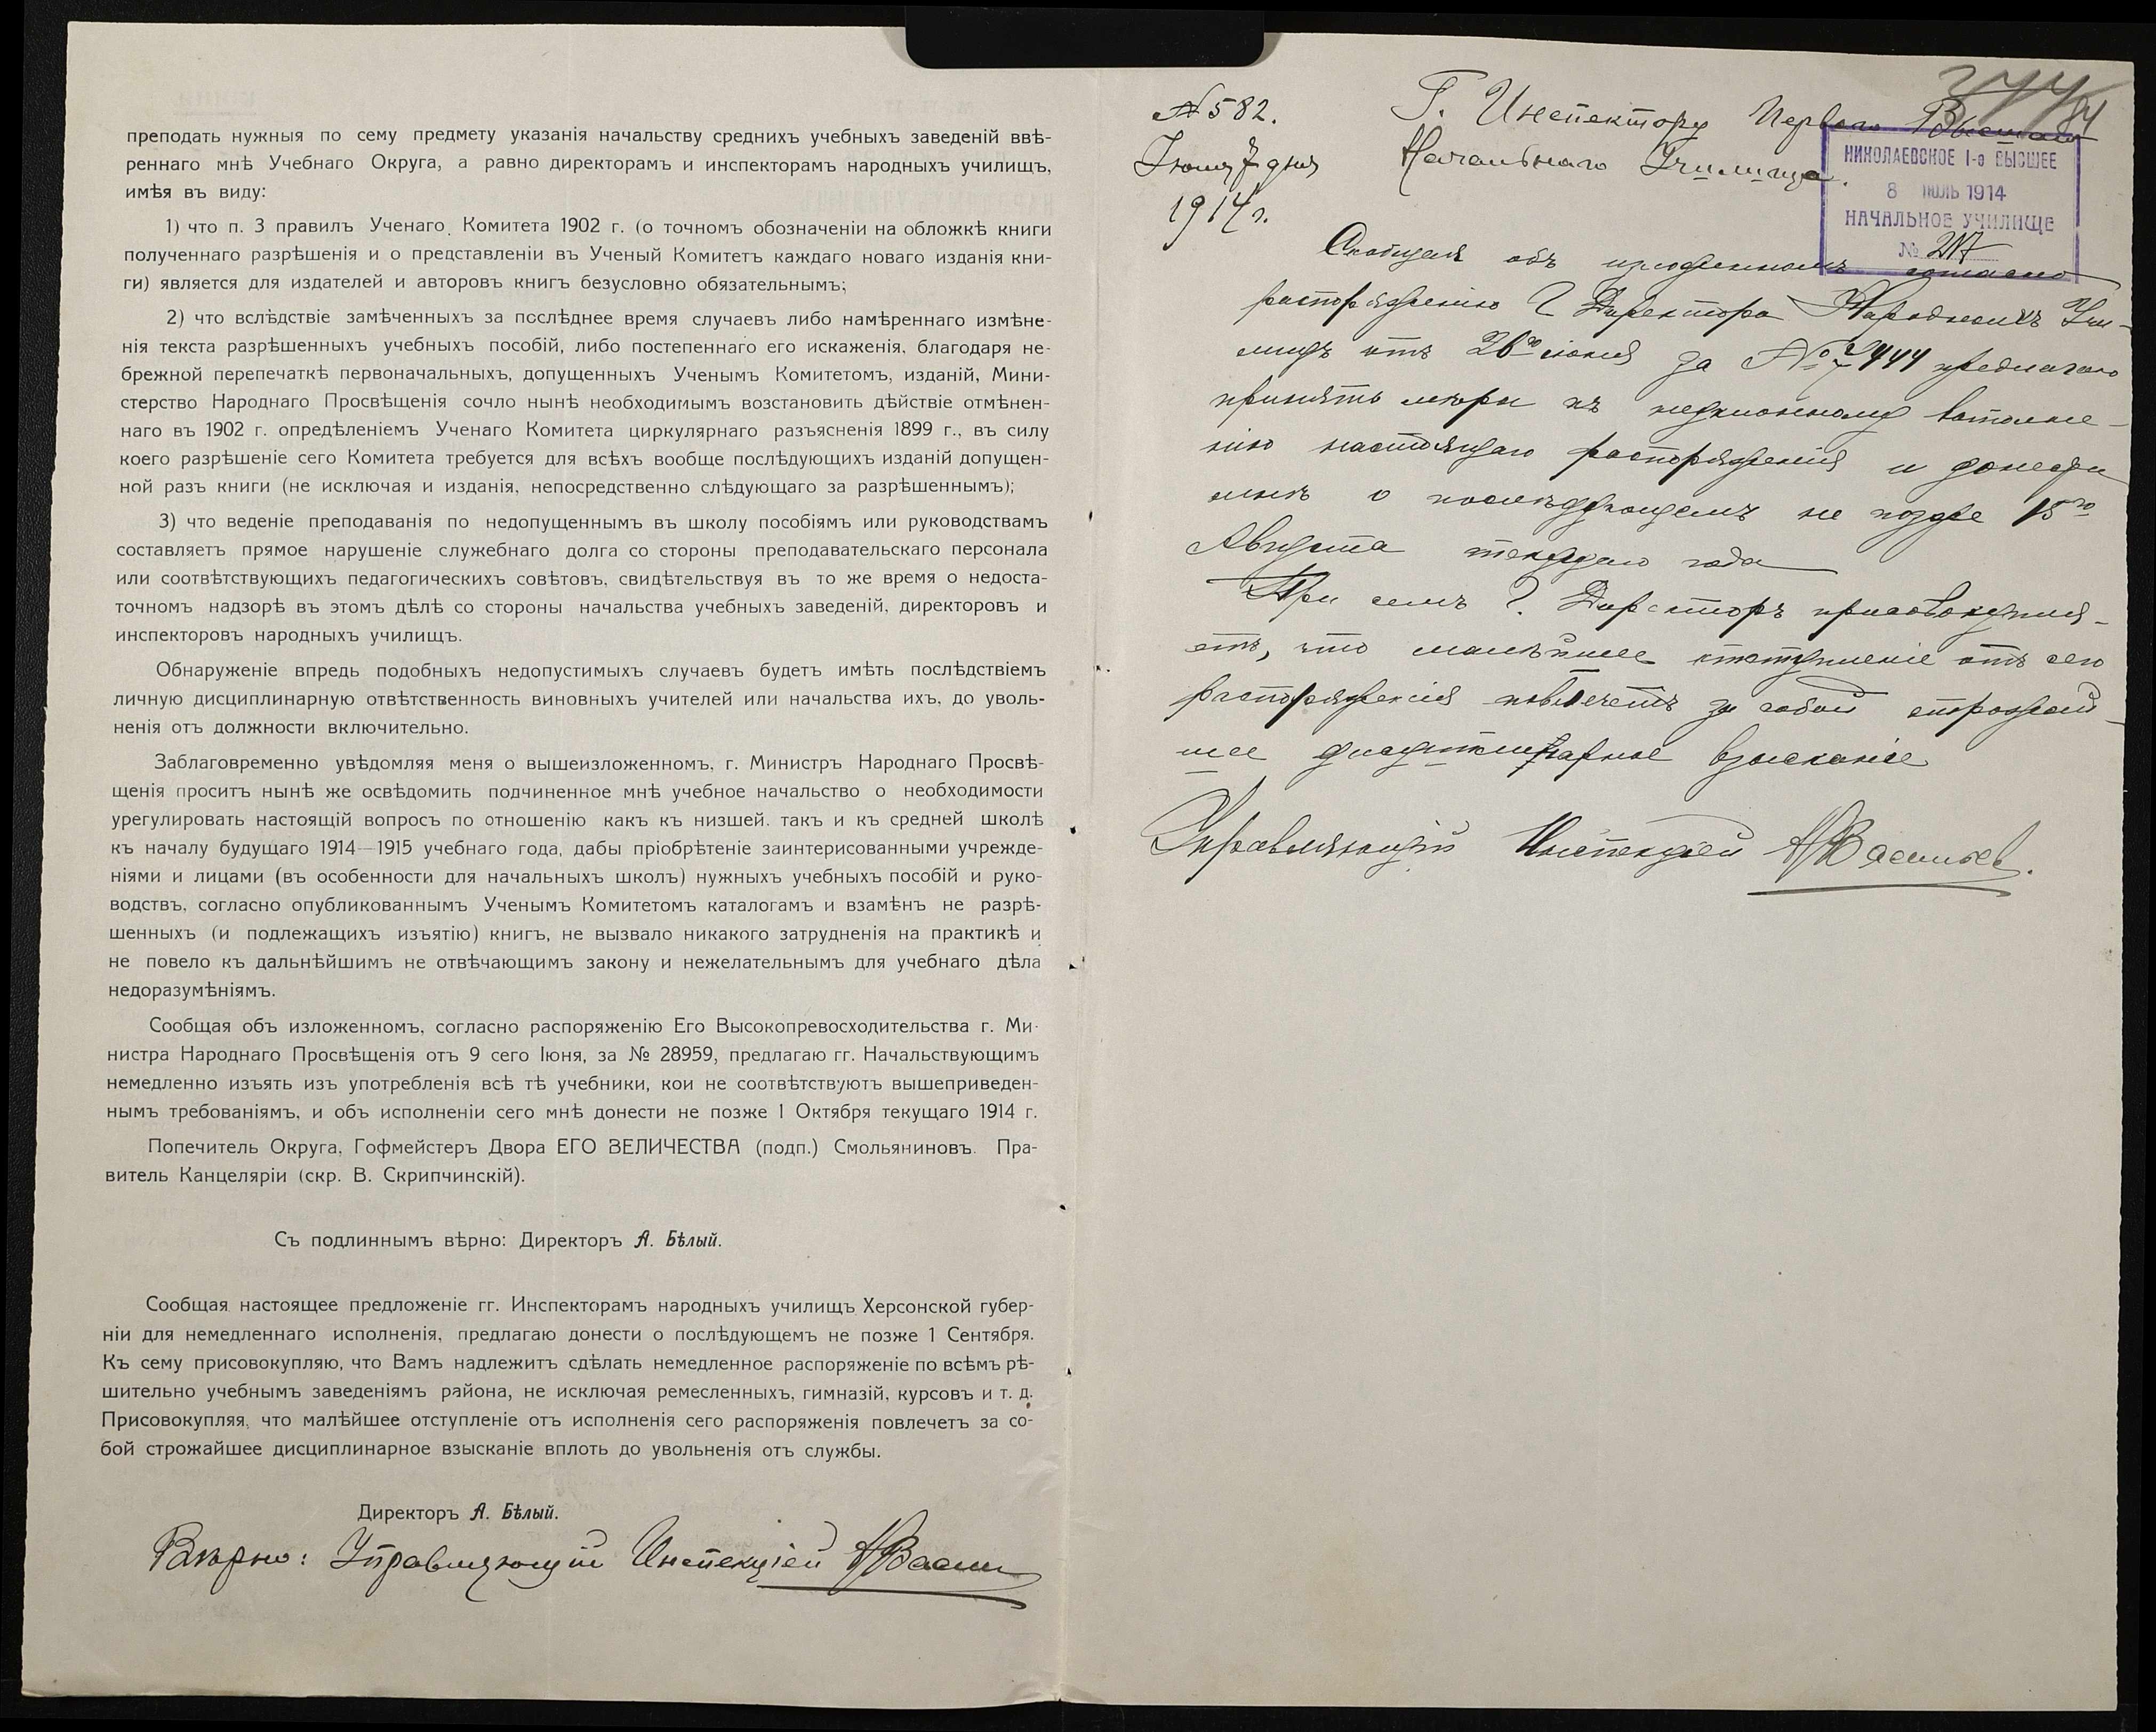 преподать нужныя по сему предмету указанія начальству среднихъ учебныхъ заведеній ввѣ-
реннаго мнѣ Учебнаго Округа, а равно директорамъ и инспекторамъ народныхъ училищъ,
имѣя въ виду:
1) что п. 3 правилъ Ученаго Комитета 1902 г. (о точномъ обозначеніи на обложкѣ книги
полученнаго разрѣшенія и о представленіи въ Ученый Комитетъ каждаго новаго изданія кни-
ги) является для издателей и авторовъ книгъ безусловно обязательнымъ;
2) что вслѣдствіе замѣченныхъ за послѣднее время случаевъ либо намѣреннаго измѣне-
нія текста разрѣшенныхъ учебныхъ пособій, либо постепеннаго его искаженія, благодаря не-
брежной перепечаткѣ первоначальныхъ, допущенныхъ Ученымъ Комитетомъ, изданій, Мини-
стерство Народнаго Просвѣщенія сочло нынѣ необходимымъ возстановить дѣйствіе отмѣнен-
наго въ 1902 г. опредѣленіемъ Ученаго Комитета циркулярнаго разъясненія 1899 г., въ силу
коего разрѣшеніе сего Комитета требуется для всѣхъ вообще послѣдующихъ изданій допущен-
ной разъ книги (не исключая и изданія, непосредственно слѣдующаго за разрѣшеннымъ);
3) что веденіе преподаванія по недопущеннымъ въ школу пособіямъ или руководствамъ
составляетъ прямое нарушеніе служебнаго долга со стороны преподавательскаго персонала
или соотвѣтствующихъ педагогическихъ совѣтовъ, свидѣтельствуя въ то же время о недоста-
точномъ надзорѣ въ этомъ дѣлѣ со стороны начальства учебныхъ заведеній, директоровъ и
инспекторовъ народныхъ училищъ.
Обнаруженіе впредь подобныхъ недопустимыхъ случаевъ будетъ имѣть послѣдствіемъ
личную дисциплинарную отвѣтственность виновныхъ учителей или начальства ихъ, до уволь-
ненія отъ должности включительно.
Заблаговременно увѣдомляя меня о вышеизложенномъ, г. Министръ Народнаго Просвѣ-
щенія проситъ нынѣ же освѣдомить подчиненное мнѣ учебное начальство о необходимости
урегулировать настоящій вопросъ по отношенію какъ къ низшей, такъ и къ средней школѣ
къ началу будущаго 1914—1915 учебнаго года, дабы пріобрѣтеніе заинтерисованными учрежде-
ніями и лицами (въ особенности для начальныхъ школъ) нужныхъ учебныхъ пособій и руко-
водствъ, согласно опубликованнымъ Ученымъ Комитетомъ каталогамъ и взамѣнъ не разрѣ-
шенныхъ (и подлежащихъ изъятію) книгъ, не вызвало никакого затрудненія на практикѣ и
не повело къ дальнѣйшимъ не отвѣчающимъ закону и нежелательнымъ для учебнаго дѣла
недоразумѣніямъ.
Сообщая объ изложенномъ, согласно распоряженію Его Высокопревосходительства г. Ми-
нистра Народнаго Просвѣщенія отъ 9 сего Іюня, за № 28959, предлагаю гг. Начальствующимъ
немедленно изъять изъ употребленія всѣ тѣ учебники, кои не соотвѣтствуютъ вышеприведен-
нымъ требованіямъ, и объ исполненіи сего мнѣ донести не позже 1 Октября текущаго 1914 г.
Попечитель Округа, Гофмейстеръ Двора ЕГО ВЕЛИЧЕСТВА (подп.) Смольяниновъ. Пра-
витель Канцеляріи (скр. В. Скрипчинскій).
Съ подлиннымъ вѣрно: Директоръ А. Бѣлый.
Сообщая настоящее предложеніе гг. Инспекторамъ народныхъ училищъ Херсонской губер-
ніи для немедленнаго исполненія, предлагаю донести о послѣдующемъ не позже 1 Сентября.
Къ сему присовокупляю, что Вамъ надлежитъ сдѣлать немедленное распоряженіе по всѣмъ рѣ-
шительно учебнымъ заведеніямъ района, не исключая ремесленныхъ, гимназій, курсовъ и т. д.
Присовокупляя, что малѣйшее отступленіе отъ исполненія сего распоряженія повлечетъ за со-
бой строжайшее дисциплинарное взысканіе вплоть до увольненія отъ службы.
Директоръ А. Бѣлый.
Вѣрно: Управляющій Инспекціей
№ 582.
Іюля 7 дня
1914 г.
Г. Инспектору Перваго Высшаго
Начальнаго Училища.
НИКОЛАЕВСКОЕ 1-о ВЫСШЕЕ
8 ІЮЛЬ 1914
НАЧАЛЬНОЕ УЧИЛИЩЕ
№ 217
Сообщая объ изложенномъ согласно
распоряженію Г. Директора Народныхъ Учи-
лищъ отъ 26го іюня за № 7444 предлагаю
принять мѣры къ неуклонному выполне-
нію настоящаго распоряженія и донести
мнѣ о послѣдующемъ не позже 15го
Августа текущаго года
При семъ Г. Директоръ присовокупля-
етъ, что малѣйшее отступленіе отъ сего
распоряженія повлечетъ за собой строжай-
шее дисциплинарное взысканіе
Управляющій Инспекціей А Васильев.